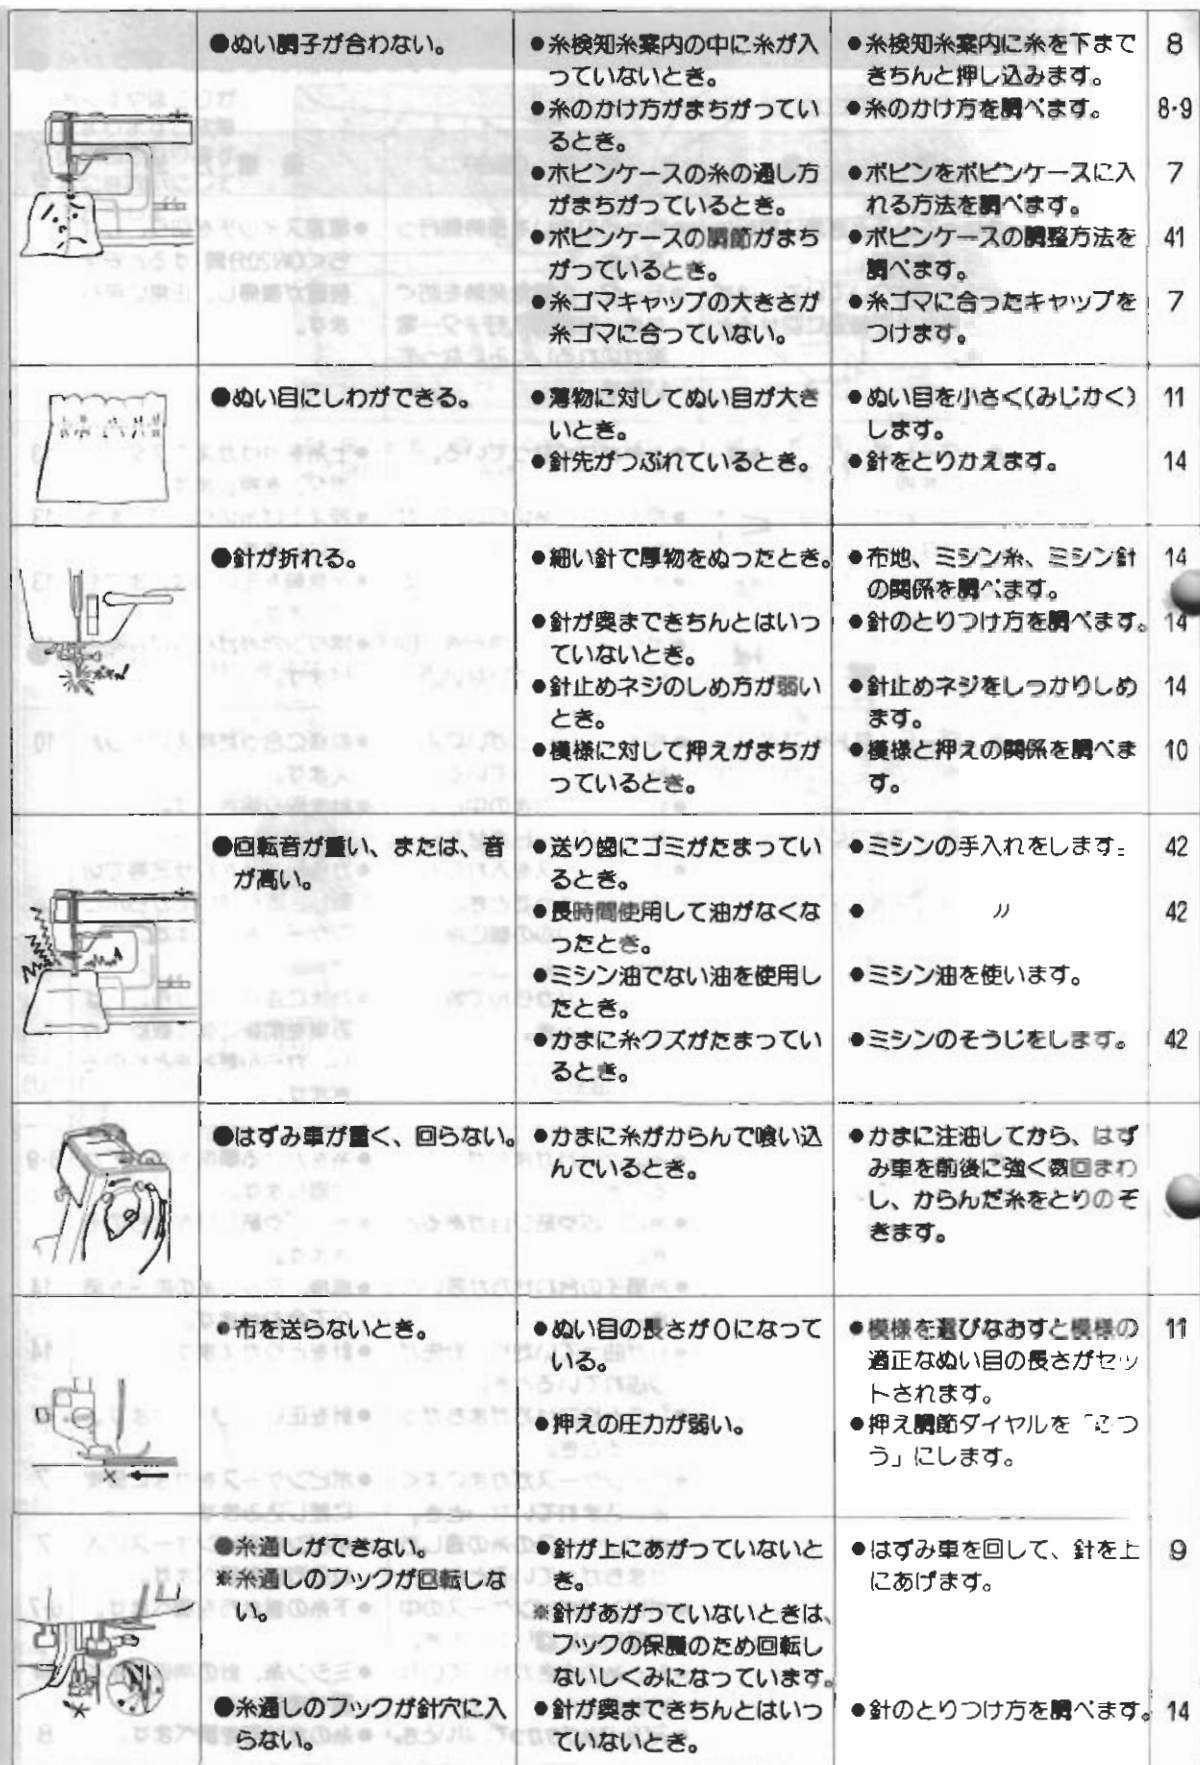 ●ぬい調子が合わない。
●糸検知糸案内の中に糸が入
っていないとき。
●糸検知糸案内に糸を下まで
きちんと押し込みます。
8
●糸のかけ方がまちがってい
るとき。
●糸のかけ方を調べます。
8・9
●ホビンケースの糸の通し方
がまちがっているとき。
●ボビンをボビンケースに入
れる方法を調べます。
7
●ボビンケースの調節がまち
がっているとき。
●ボビンケースの調整方法を
調べます。
41
●糸ゴマキャップの大きさが
糸ゴマに合っていない。
●糸ゴマに合ったキャップを
つけます。
7
●ぬい目にしわができる。
●薄物に対してぬい目が大き
いとき。
●ぬい目を小さく(みじかく)
します。
11
●針先がつぶれているとき。
●針をとりかえます。
14
●針が折れる。
●細い針で厚物をぬったとき。
●布地、ミシン糸、ミシン針
の関係を調べます。
14
●針が奥まできちんとはいっ
ていないとき。
●針のとりつけ方を調べます。
14
●針止めネジのしめ方が弱い
とき。
●針止めネジをしっかりしめ
ます。
14
●模様に対して押えがまちが
っているとき。
●模様と押えの関係を調べま
す。
10
●回転音が重い、または、音
が高い。
●送り歯にゴミがたまってい
るとき。
●ミシンの手入れをします。
42
●長時間使用して油がなくな
ったとき。
● 〃
42
●ミシン油でない油を使用し
たとき。
●ミシン油を使います。
●かまに糸クズがたまってい
るとき。
●ミシンのそうじをします。
42
●はずみ車が重く、回らない。
●かまに糸がからんで喰い込
んでいるとき。
●かまに注油してから、はず
み車を前後に強く数回まわ
し、からんだ糸をとりのぞ
きます。
●布を送らないとき。
●ぬい目の長さが0になって
いる。
●模様を選びなおすと模様の
適正なぬい目の長さがセッ
トされます。
11
●押えの圧力が弱い。
●押え調節ダイヤルを「ふつ
う」にします。
●糸通しができない。
※糸通しのフックが回転しな
い。
●針が上にあがっていないと
き。
※針があがっていないときは、
フックの保護のため回転し
ないしくみになっています。
●はずみ車を回して、針を上
にあげます。
9
●糸通しのフックが針穴に入
らない。
●針が奥まできちんとはいっ
ていないとき。
●針のとりつけ方を調べます。
14